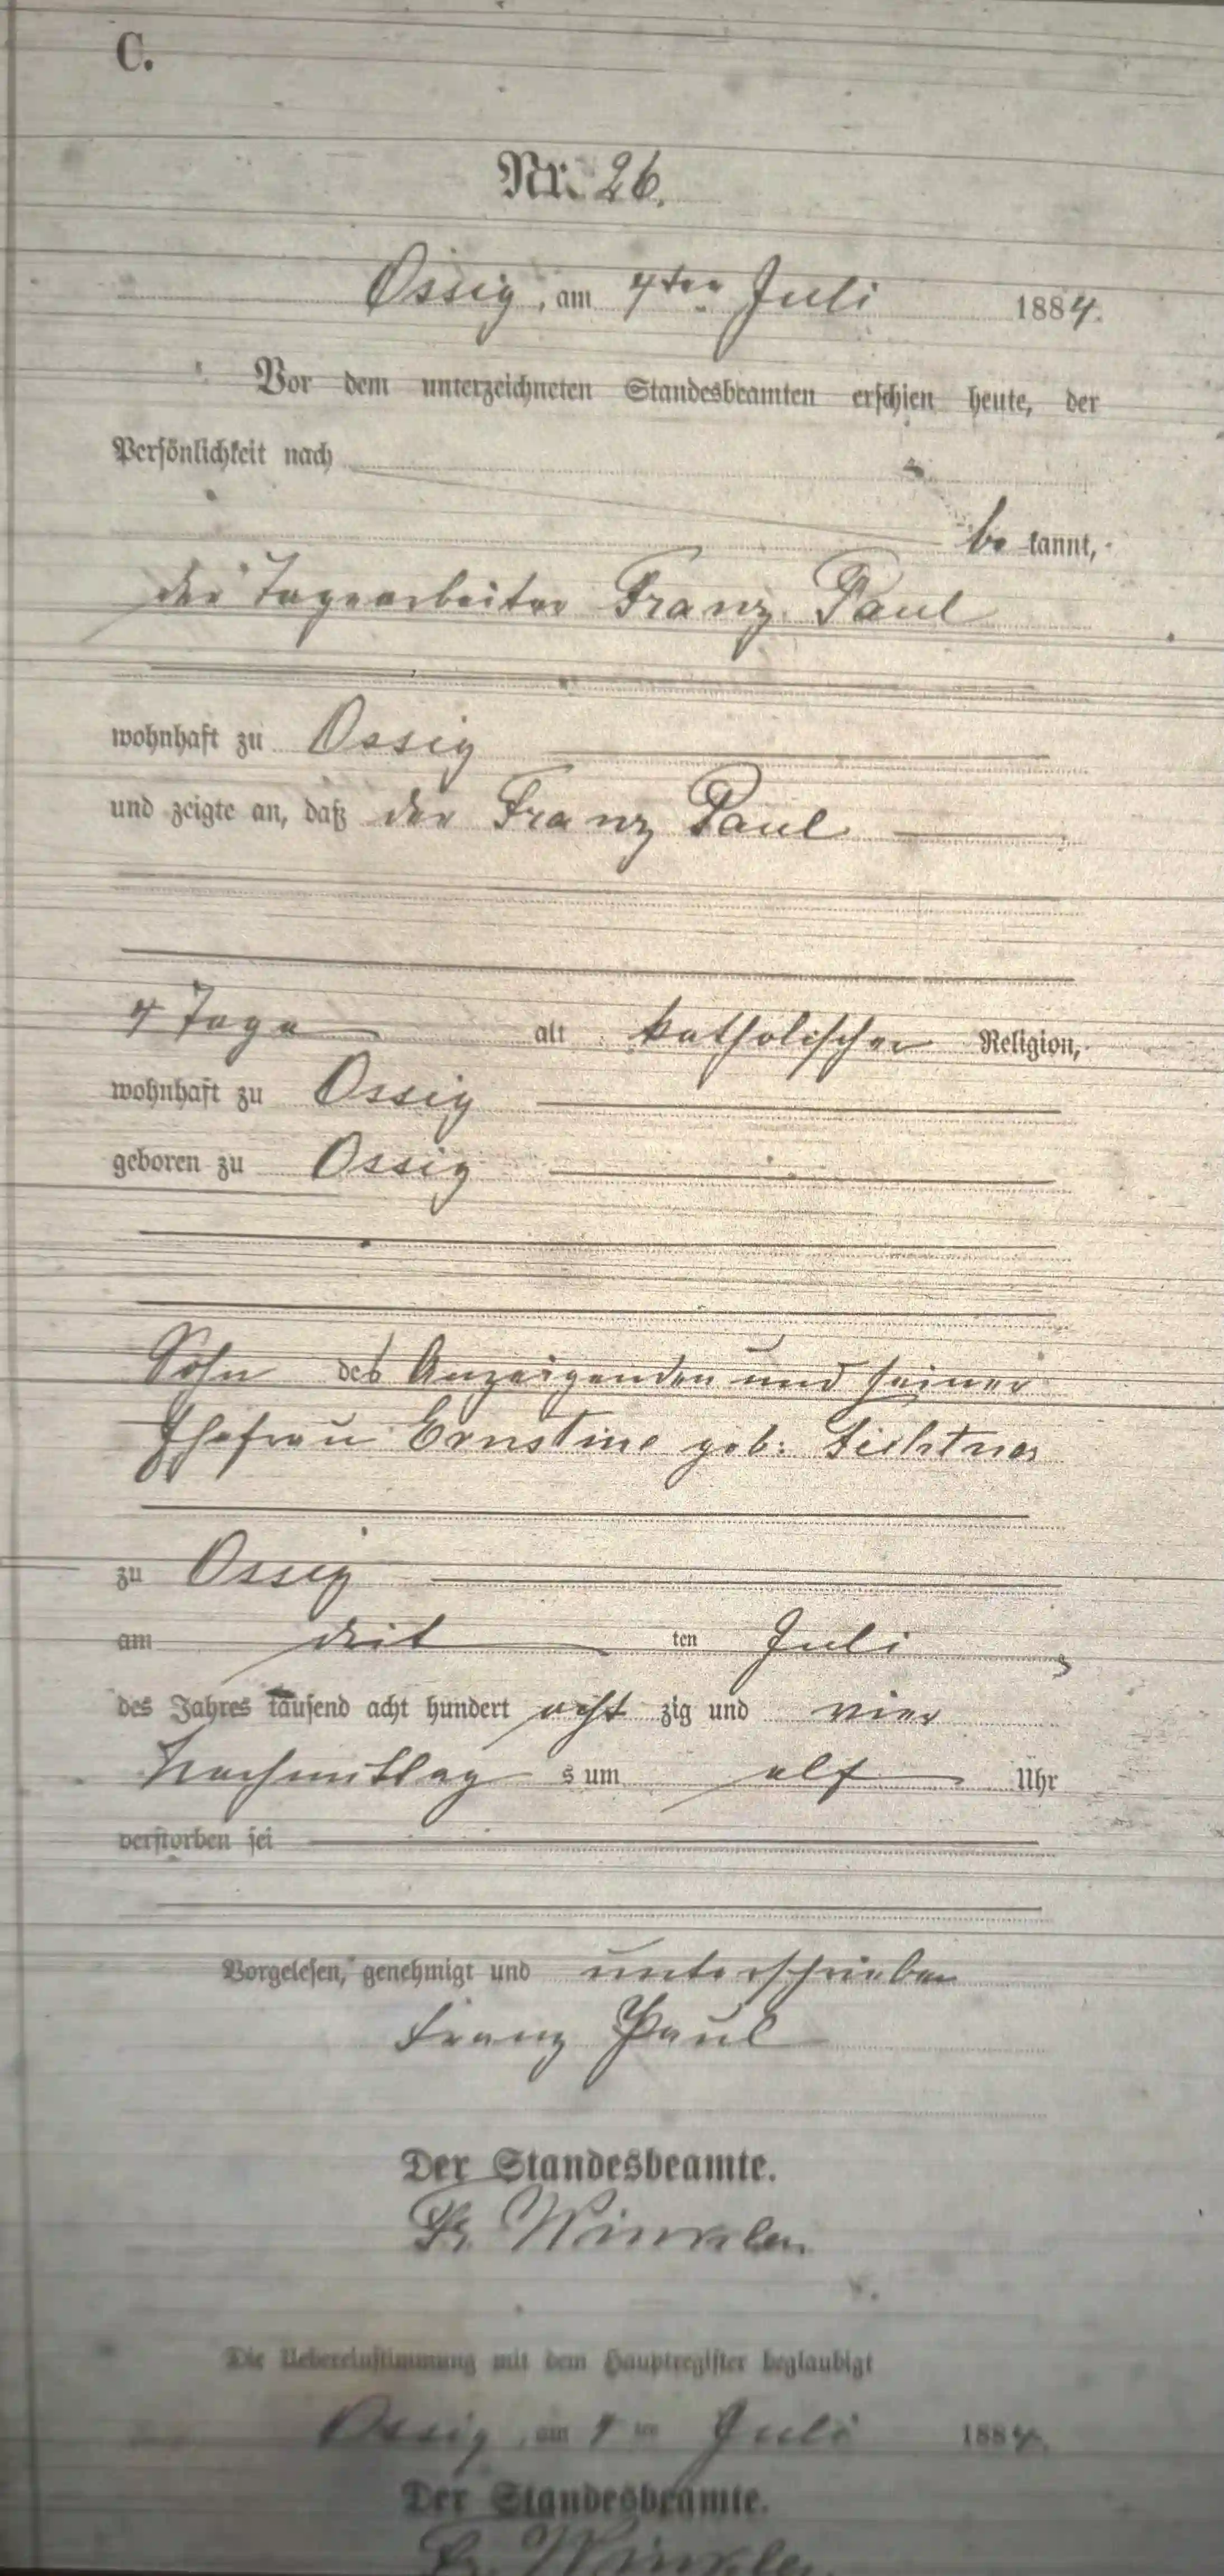 C.
Nr. 26.
Ossig, am 4ten Juli 1884.
Vor dem unterzeichneten Standesbeamten erschien heute, der
Persönlichkeit nach
be kannt,
der Tagearbeiter Franz Paul
wohnhaft zu Ossig
und zeigte an, daß der Franz Paul
4 Tage alt katholischer Religion,
wohnhaft zu Ossig
geboren zu Ossig
Sohn des Anzeigenden und seiner
Ehefrau Ernstine geb:
zu Ossig
am drit ten Juli
des Jahres tausend acht hundert acht zig und vier
Nachmittag s um elf Uhr
verstorben sei
Vorgelesen, genehmigt und unterschrieben
Franz Paul
Der Standesbeamte.
Winkler
Die Uebereinstimmung mit dem Hauptregister beglaubigt
Ossig, am 4 ten Juli 1884.
Der Standesbeamte.
Winkler